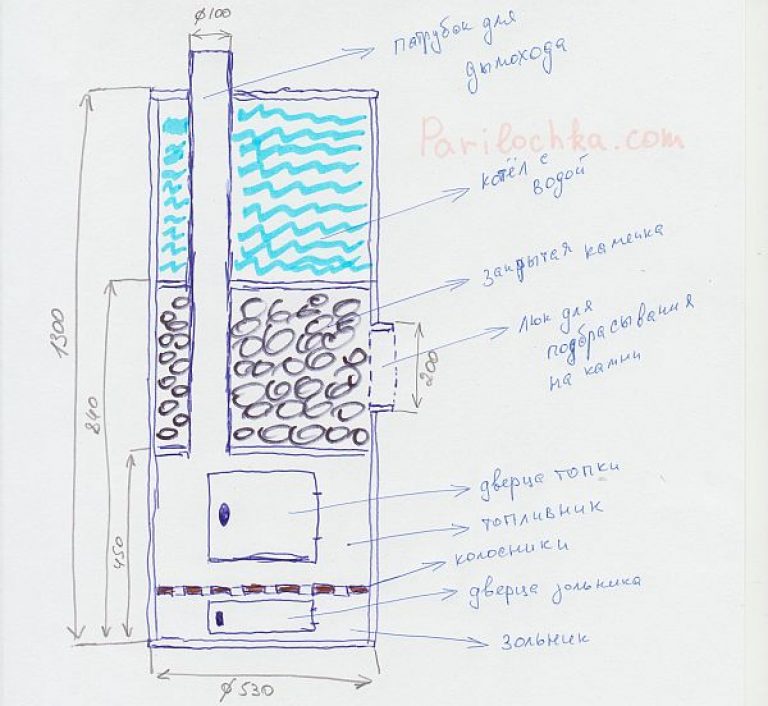 ф100
патрубок для
дымохода
Parilochka.com
котёл с
водой
закрытая каменка
люк для
подбрасывания
на камни
200
1300
840
450
дверца топки
топливник
колосники
дверца зольника
зольник
ф530